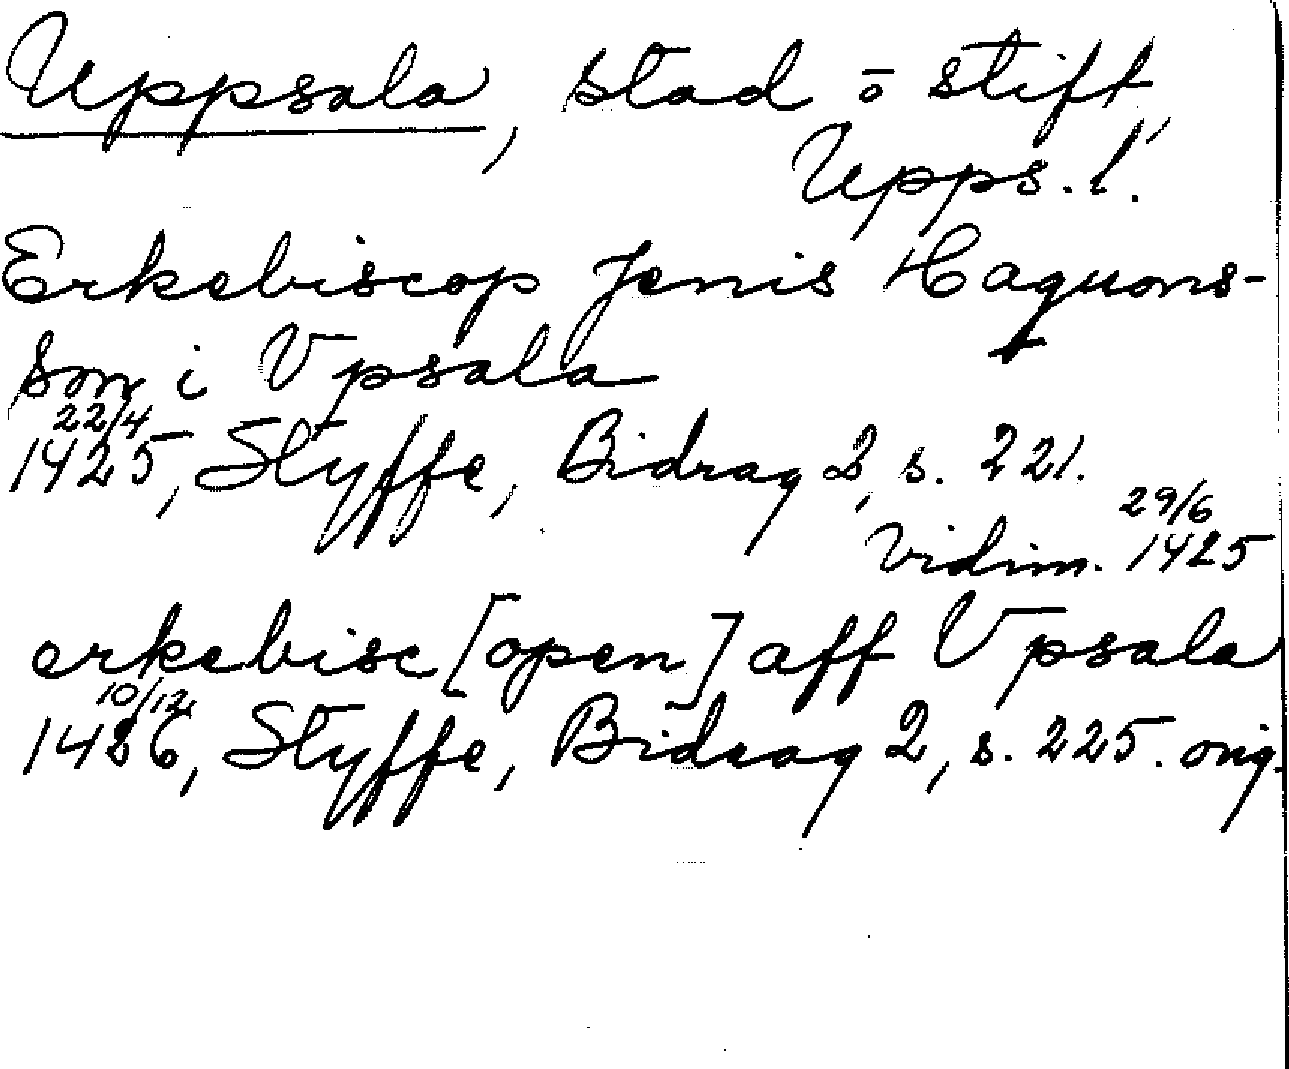 Uppsala, stad o stift,
Upps. l.
Erkebiscop Jenis Haquons-
son i Vpsala
22/4
1425, Styffe, Bidrag 2, s. 221.
29/6
Vidim. 1425
erkebisc[open] aff Vpsala
10/12
1426, Styffe, Bidrag 2, s. 225. orig.